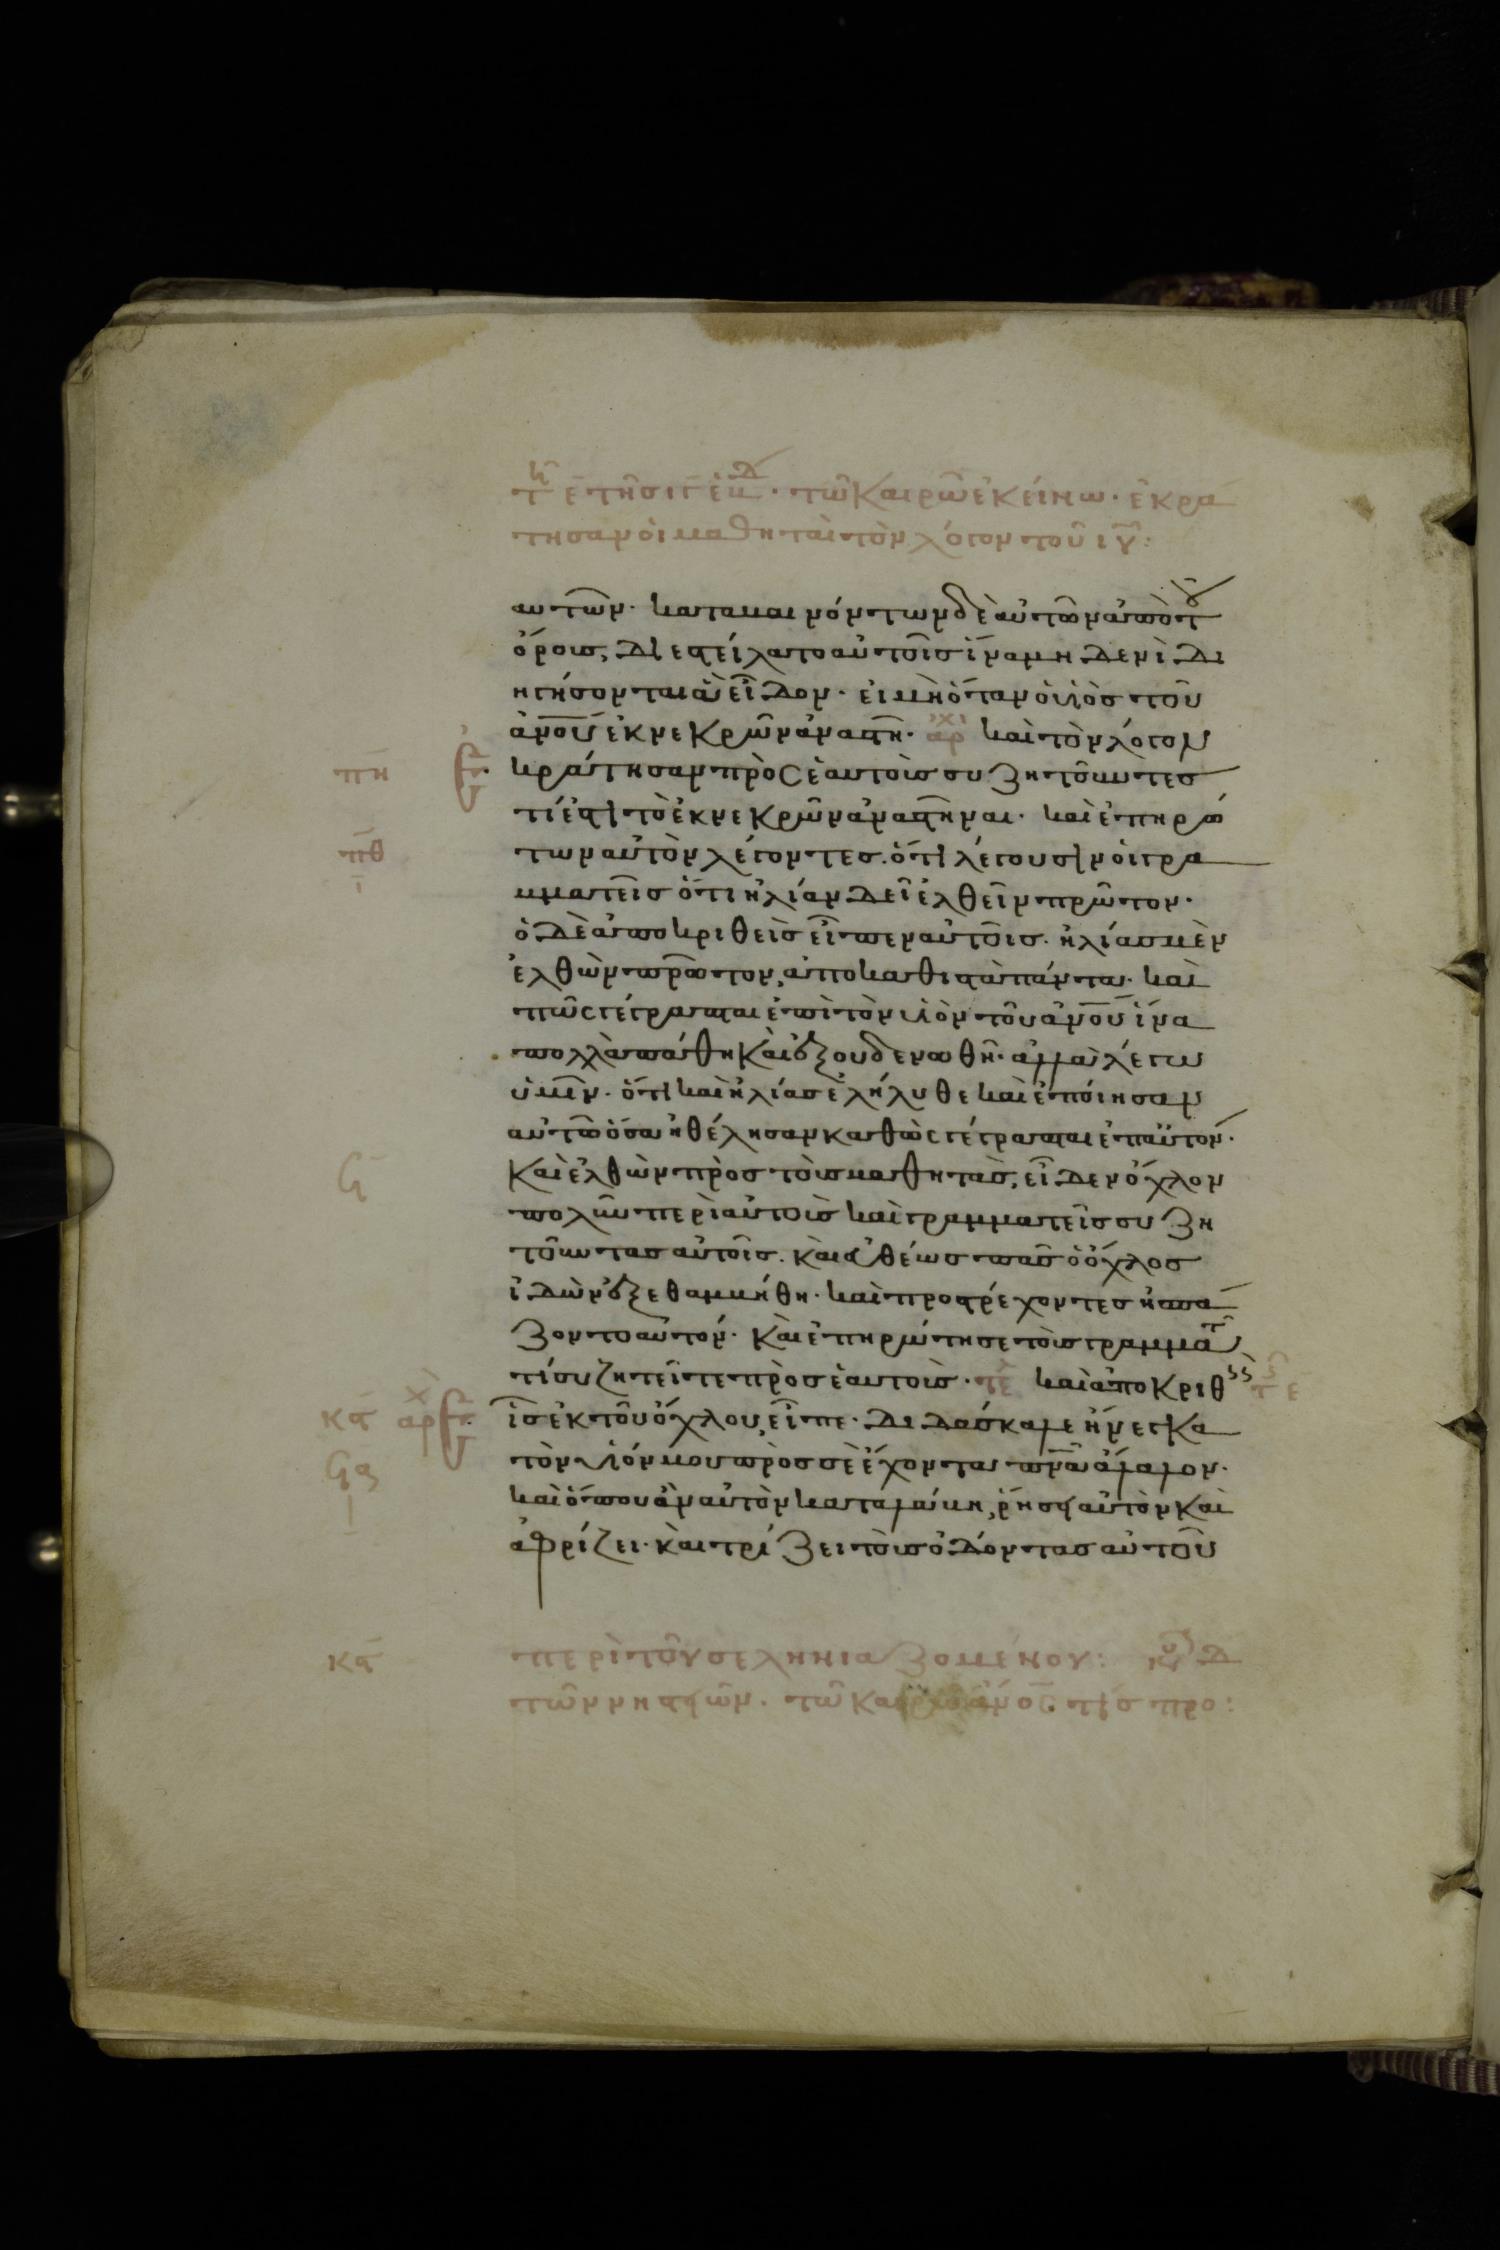 τῇ ε τῆς ιϛ ἑβδ. τῶ καιρῶ ἐκείνω. ἐκρά
τησαν οἱ μαθηταὶ τὸν λόγον τοῦ ιυ:
αυτῶν. καταβαινόντων δὲ αὐτῶν ἀπὸ τοῦ
ὄρους, διεστείλατο αὐτοῖς ἵνα μηδενὶ δι
ηγήσονται ἃ εἶδον. εἰ μὴ ὅταν ὁ υἱὸς τοῦ
ἀνου ἐκ νεκρῶν ἀναστῆ. ἀρχ καὶ τὸν λόγον
πη
κράτησαν πρὸς ἑαυτοὺς συζητοῦντες
τί ἐστι τὸ ἐκ νεκρῶν ἀναστῆναι. καὶ ἐπηρώ
πθ
ι
των αὐτὸν λέγοντες. ὅτι λέγουσιν οἱ γρα
μματεῖς ὅτι ἠλίαν δεῖ ἐλθεῖν πρῶτον.
ὁ δὲ ἀποκριθεὶς εἶπεν αὐτοῖς. ἠλίας μὲν
ἐλθὼν πρῶτον, ἀποκαθιστᾶ πάντα. καὶ
πῶς γέγραπται ἐπὶ τὸν υἱὸν τοῦ ἀνου ἵνα
πολλὰ πάθη καὶ ἐξουδενωθῆ. ἀλλὰ λέγω
ὑμῖν. ὅτι καὶ ἠλίας ἐλήλυθε καὶ ἐποίησαν
αὐτῶ ὅσα ἠθέλησαν καθὼς γέγραπται ἐπ αὐτόν.
Ϟ
Καὶ ἐλθὼν πρὸς τοὺς μαθητὰς, εἶδεν ὄχλον
πολὺν περὶ αὐτοὺς καὶ γραμματεῖς συζη
τοῦντας αὐτοῖς. καὶ εὐθέως πᾶς ὁ ὄχλος
ἰδὼν ἐξεθαμβήθη. καὶ προστρέχοντες ἠσπά
ζοντο αὐτόν. Καὶ ἐπηρώτησε τοὺς γραμματ
τί συζητεῖτε πρὸς ἑαυτούς. τε καὶ ἀποκριθ
κα ἀρχ
εὶς ἐκ τοῦ ὄχλου, εἶπε. διδάσκαλε ἤνεγκα
Ϟα
ι
τὸν υἱόν μου πρὸς σὲ ἔχοντα πνα ἄλαλον.
καὶ ὅπου ἂν αὐτὸν καταλάβη, ῥήσσει αὐτὸν καὶ
ἀφρίζει. καὶ τρίζει τοὺς ὀδόντας αὐτοῦ
κα περὶ τοῦ σεληνιαζομένου: κυ δ
τῶν νηστειῶν. τῶ καιρῶ ἀνος τις προ: